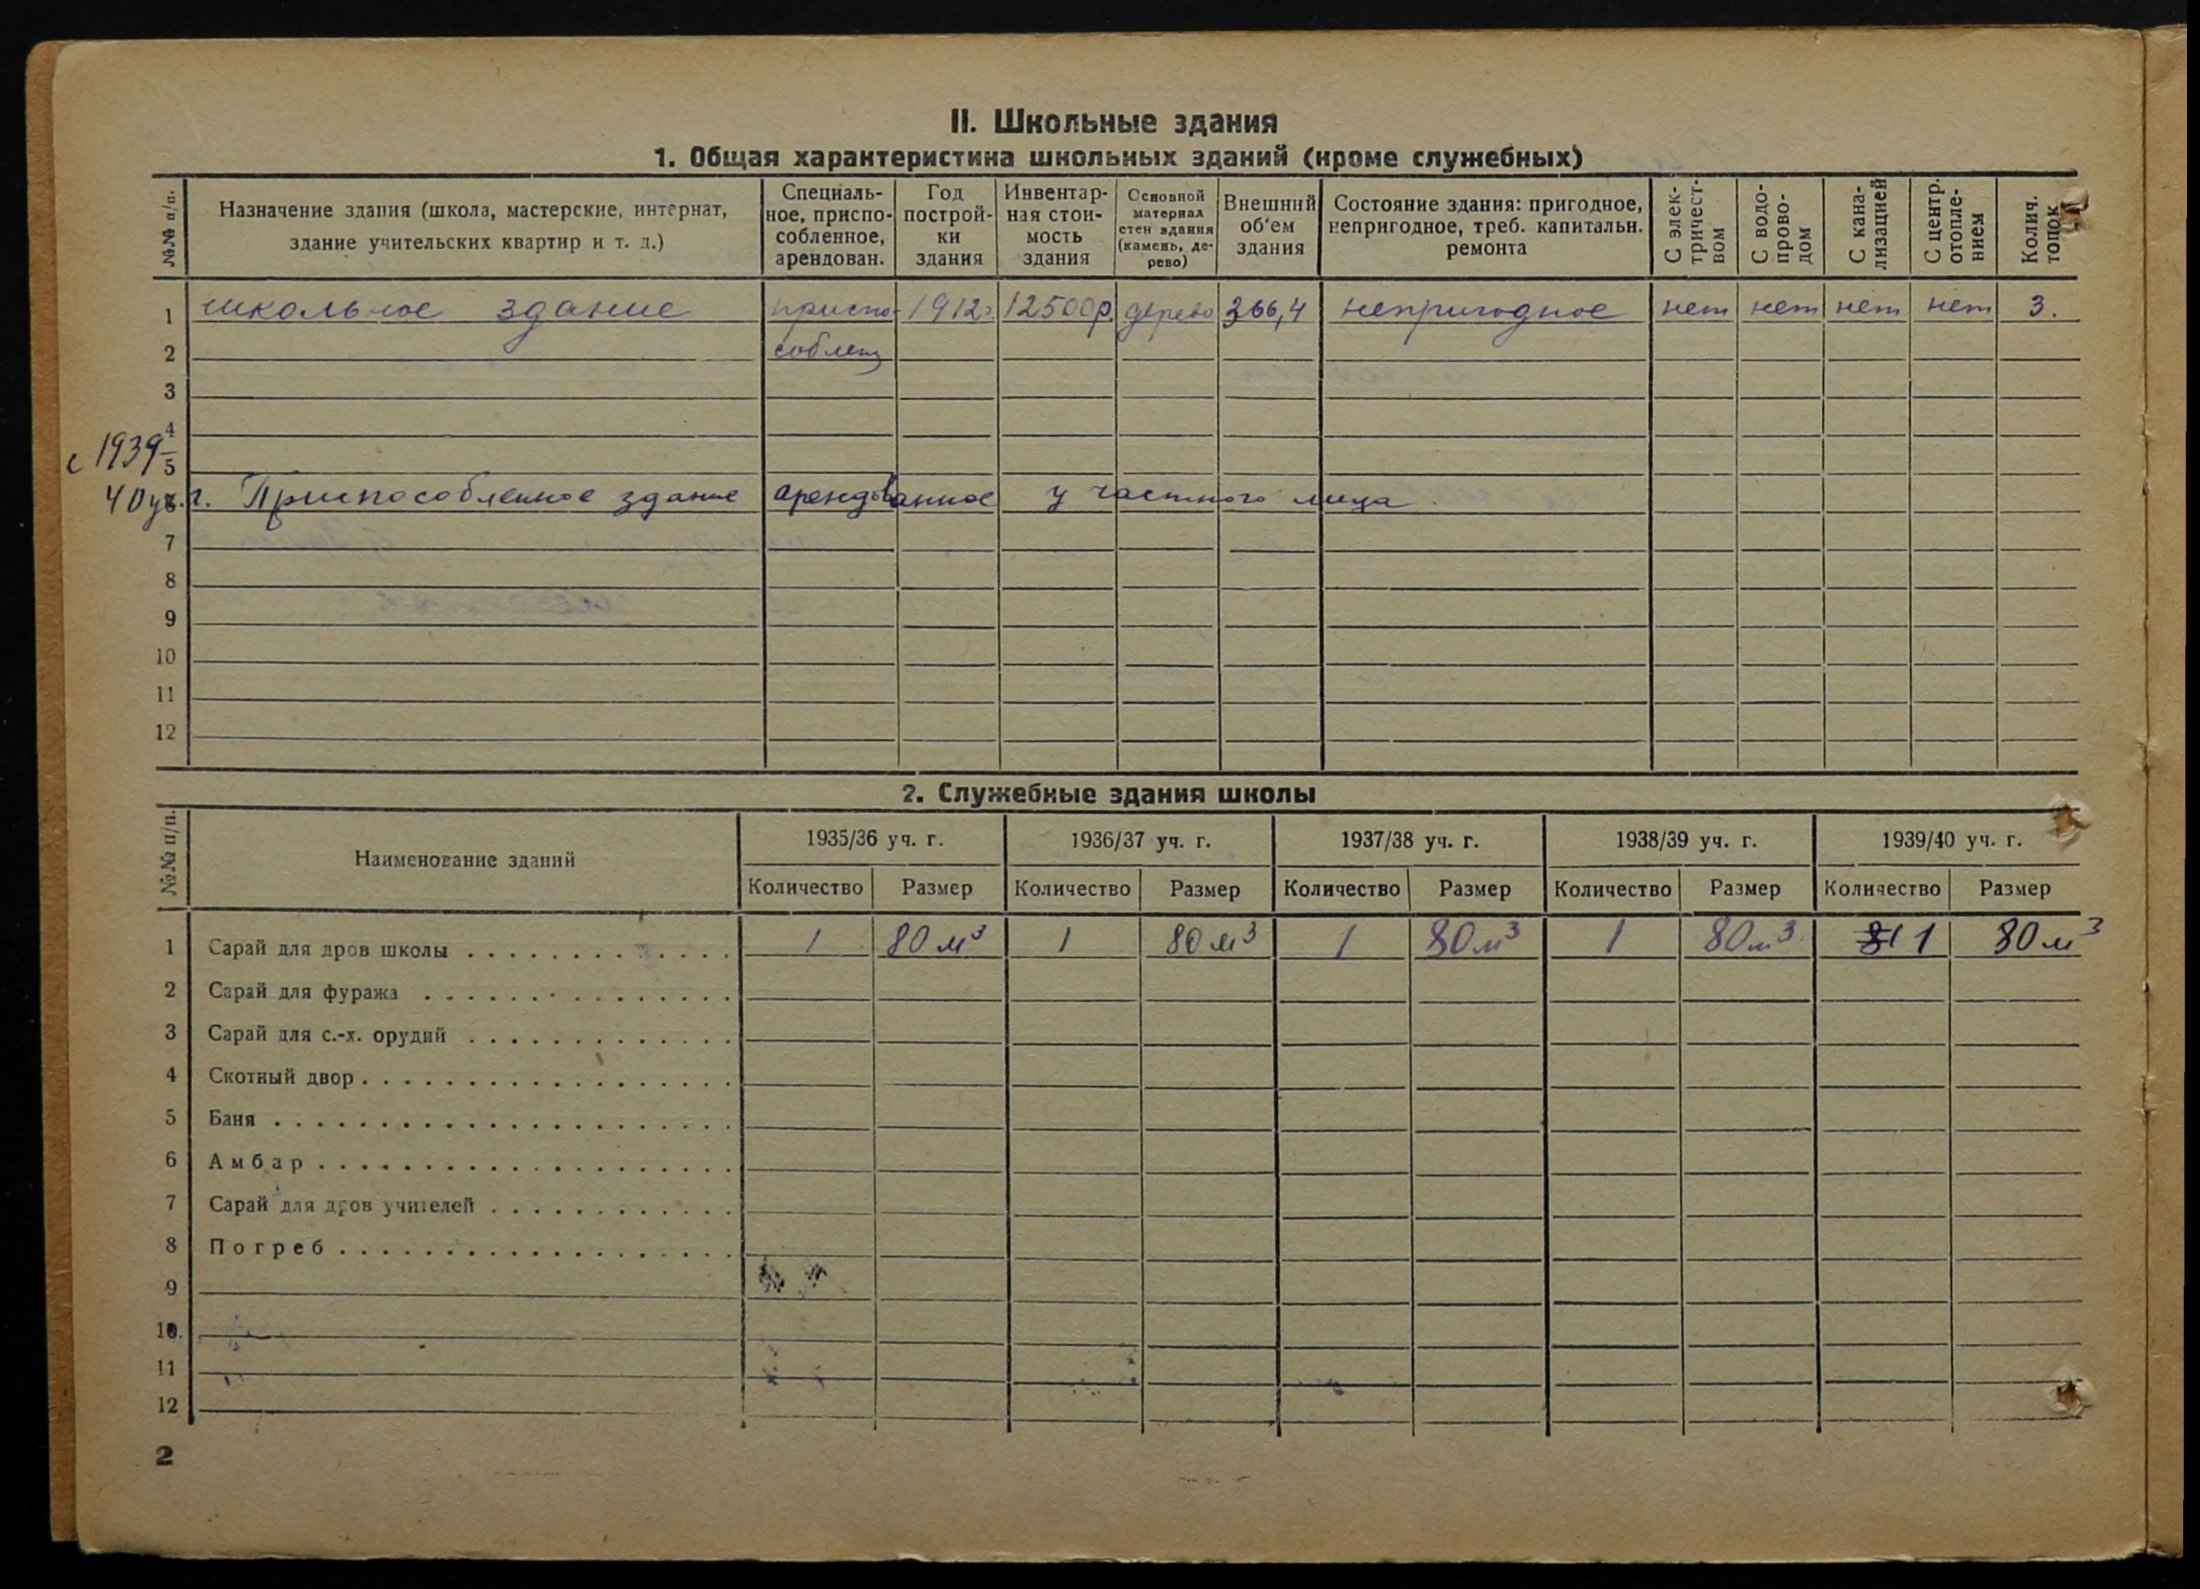 II. Школьные здания
1. Общая характеристика школьных зданий (кроме служебных)
№№ п/п. Назначение здания (школа, мастерские, интернат, здание учительских квартир и т. д.) Специаль-ное, приспо-собленное, арендован. Год построй-ки здания Инвентар-ная стои-мость здания Основной материал стен здания (камень, де-рево) Внешний об'ем здания Состояние здания: пригодное, непригодное, треб. капитальн. ремонта С элек-тричест-вом С водо-прово-дом С кана-лизацией С центр. отопле-нием Колич. топок
1 школьное здание приспо- 1912г. 12500р. дерево 366,4 непригодное нет нет нет нет 3.
2 соблен
3
4
с 1939-
5
40 уч. г. Приспособленное здание арендованное у частного лица.
7
8
9
10
11
12
2. Служебные здания школы
№№ п/п. Наименование зданий 1935/36 уч. г. 1936/37 уч. г. 1937/38 уч. г. 1938/39 уч. г. 1939/40 уч. г.
Количество Размер Количество Размер Количество Размер Количество Размер Количество Размер
1 Сарай для дров школы . . . . . . . . . . . . . 1 80 м³ 1 80 м³ 1 80 м³ 1 80 м³ 1 80 м³
2 Сарай для фуража . . . . . . . . . . . . . . .
3 Сарай для с.-х. орудий . . . . . . . . . . . . .
4 Скотный двор . . . . . . . . . . . . . . . . . .
5 Баня . . . . . . . . . . . . . . . . . . . . . .
6 Амбар . . . . . . . . . . . . . . . . . . . .
7 Сарай для дров учителей . . . . . . . . . . . .
8 Погреб . . . . . . . . . . . . . . . . . . .
9
10.
11
12
2